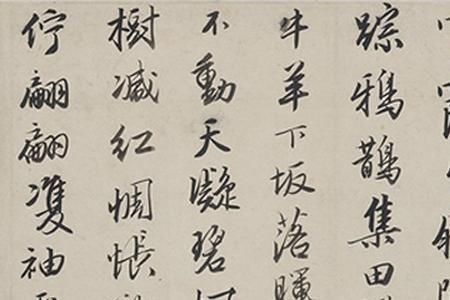 踪鴉鵲集田
牛羊下坂落暉
不動天凝碧
樹減紅惆悵
佇翩翩雙袖